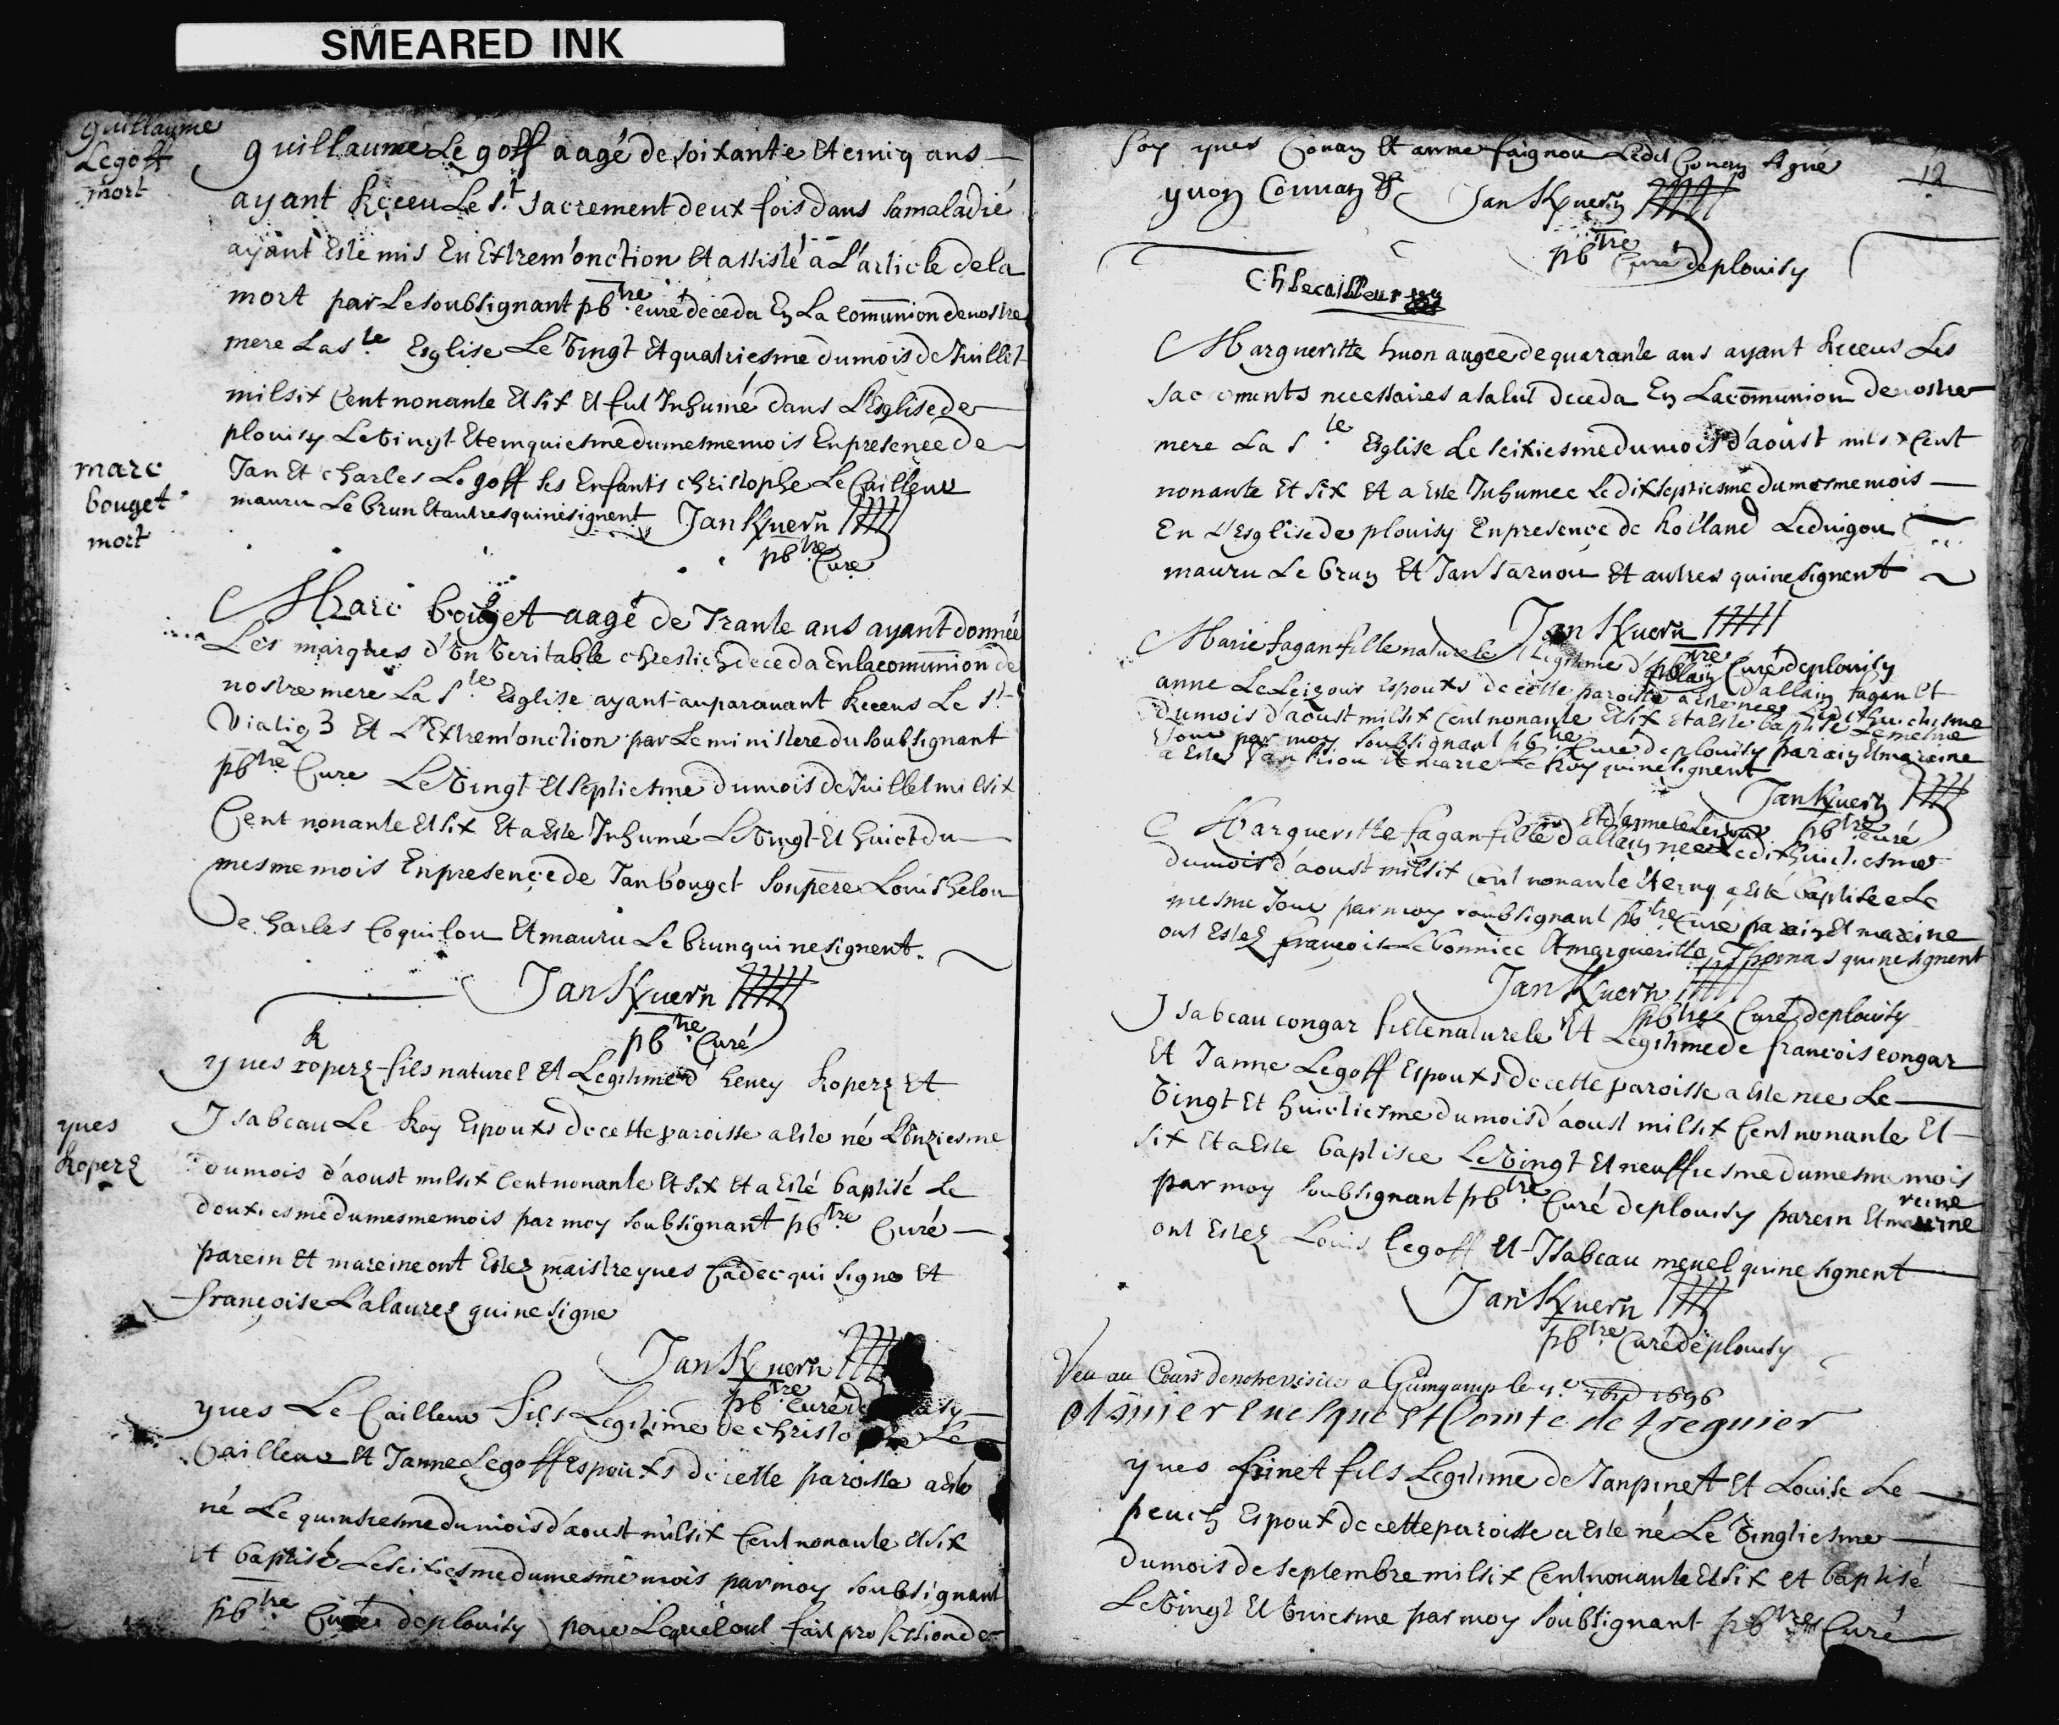 SMEARED INK
guillaume
Le goff
mort
guillaume Le goff aagé de soixante Et cinq ans
ayant Receu Le St. sacrement deux fois dans sa maladie
ayant Esté mis En Extrem'onction Et assisté a L'article de la
mort par Le soubsignant pbtre. curé deceda En La communion de nostre
mere La Ste Esglise Le vingt Et quatriesme du mois de Juillet
mil six Cent nonante Et six Et fut Inhumé dans L'Esglise de
plouisy Le vingt Et cinquiesme du mesme mois En presence de
Jan Et charles Le goff ses Enfants christophe Le Cailleur
mauru Le brun Et autres qui ne signent Jan Kuern
pbtre Curé
marc
bouget
mort
Marc bouget aagé de Trante ans ayant donnée
Les marques d'un veritable chrestien deceda En la communion de
nostre mere La Ste Esglise ayant auparavant Receus Le St
Viatiq3 Et L'Extrem'onction par Le ministere du soubsignant
pbtre Curé Le vingt Et septiesme du mois de Juillet mil six
Cent nonante Et six Et a Esté Inhumé Le vingt Et huict du
mesme mois En presence de Jan bouget son pere Louis helou
De charles Coquilou Et mauru Le brun qui ne signent.
Jan Kuern
pbtre Curé
yves
Roperz
R
yves roperz fils naturel Et Legitime d' henry Roperz Et
Isabeau Le Roy Espouxs de cette paroisse a Esté né L'unziesme
du mois d'aoust mil six Cent nonante Et six Et a Esté baptisé Le
douxiesme du mesme mois par moy soubsignant pbtre Curé
parein Et mareine ont Estez maistre yves Cadec qui signe Et
françoise Lalaurez qui ne signe
Jan Kuern
pbtre Curé de
yves Le Cailleur fils Legitime de christo Le
Cailleur Et Janne Le goff Espouxs de cette paroisse a Esté
né Le quinsiesme du mois d'aoust mil six Cent nonante Et six
Et baptisé Le seixiesme du mesme mois par moy soubsignant
pbtre Curé de plouisy pour Lequel ont fait profession de
foy yves Conan Et anne faignou Ledit Conan signe
12
yvon Connan Jan Kuern
pbtre Curé de plouisy
Ch Lecailleur
Margueritte huon aagee de quarante ans ayant Receus Les
sacrements necessaires a salut deceda En La communion de nostre
mere La Ste Esglise Le seixiesme du mois d'aoust mil six Cent
nonante Et six Et a Esté Inhumee Le dix septiesme du mesme mois
En L'Esglise de plouisy En presence de Rolland Le duigou
mauru Le brun Et Jan Tarnou Et autres qui ne signent
Jan Kuern
pbtre Curé de plouisy
Marie fagan fille naturele Legitime d'allain d'allain fagan Et
anne Le Leizour Espouxs de cette paroisse a Esté nee Le dix huictiesme
du mois d'aoust mil six Cent nonante Et six Et a Esté baptisé Le mesme
Jour par moy soubsignant pbtre Curé de plouisy parain Et maraine
a Estez Jan Riou Et marie Le Roy qui ne signent
Jan Kuern
pbtre curé
Et d'anne Le Leizour
Margueritte fagan fille d'allain nee Le dix huictiesme
du mois d'aoust mil six Cent nonante Et cinq a Esté baptisee Le
mesme Jour par moy soubsignant pbtre Curé parain Et mareine
ont Estez françois Le bonniec Et marguerite Thomas qui ne signent
Jan Kuern
pbtre Curé de plouisy
Isabeau congar fille naturele Et Legitime de francois congar
Et Janne Le goff Espouxs de cette paroisse a Esté nee Le
vingt Et huictiesme du mois d'aoust mil six Cent nonante Et
six Et a Esté baptisee Le vingt Et neuffiesme du mesme mois
par moy soubsignant pbtre Curé de plouisy parein Et mareine
reine
ont Estez Louis Le goff Et Isabeau menel qui ne signent
Jan Kuern
pbtre Curé de plouisy
Veu au Cours de nostre visite a Guingamp le 1696
olivier Evesque Et Comte de treguier
yves pinet fils Legitime de Jan pinet Et Louise Le
peuch Espoux de cette paroisse a Esté né Le vingtiesme
du mois de septembre mil six Cent nonante Et six Et baptisé
Le vingt Et uniesme par moy soubsignant pbtre Curé